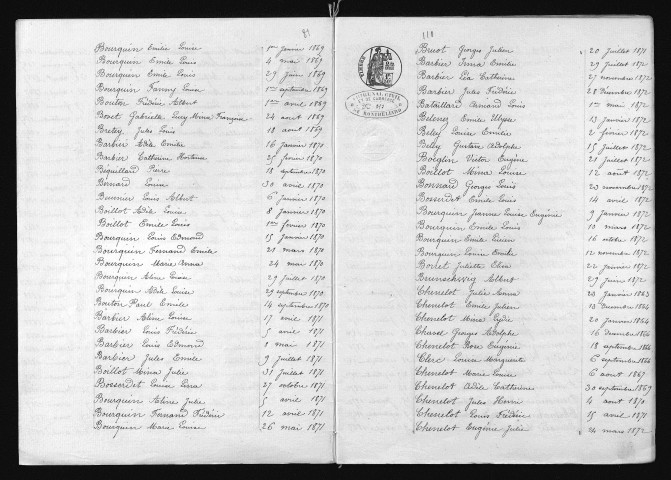 Bourquin Emilie Louise 1er janvier 1869
Bourquin Emile Louis 4 mai 1869
Bourquin Emile Louis 29 juin 1869
Bourquin Fanny 1er septembre 1869
Bouton Frédéric Albert 1er avril 1869
Bovet Gabrielle Lucy Mona Françoise 24 août 1869
Bretey Jules Louis 18 août 1869
Barbier Adèle Emilie 16 janvier 1870
Barbier Catherine Hortense 25 février 1870
Béguillard Pierre 18 septembre 1870
Bernard Louise 30 avril 1870
Beurnier Louis Albert 6 janvier 1870
Boillot Adèle Louise 8 janvier 1870
Boillot Emile Louis 1er février 1870
Bourquin Louis Edmond 15 janvier 1870
Bourquin Fernand Emile 21 mars 1870
Bourquin Marie Anna 24 mai 1870
Bourquin Aline 29 juillet 1870
Bourquin Adèle Louise 29 septembre 1870
Bouton Paul Emile 14 septembre 1870
Barbier Aline Louise 17 avril 1871
Barbier Louis Frédéric 5 avril 1871
Barbier Louis Edmond 1 mai 1871
Barbier Jules Emile 9 juillet 1871
Boillot Mina Julie 31 juillet 1871
Bosserdet Louise 27 octobre 1871
Bourquin Aline Julie 5 avril 1871
Bourquin Fernand Frédéric 12 avril 1871
Bourquin Marie Louise 26 mai 1871
118
TRIBUNAL CIVIL
DE MONTBÉLIARD
Bruot Georges Julien 20 juillet 1871
Barbier Anna Emilie 29 juillet 1872
Barbier Léa Catherine 27 novembre 1872
Barbier Jules Frédéric 2 décembre 1872
Bataillard Armand Louis 1er mai 1872
Belenez Emile Ulysse 13 janvier 1872
Beley Louise Emilie 2 février 1872
Beley Gustave Adolphe 15 juillet 1872
Boeglin Victor Eugène 21 juillet 1872
Boillot Mina Louise 12 août 1872
Bonnard Georges Louis 23 novembre 1872
Bosserdet Emile Louis 14 avril 1872
Bourquin Jeanne Louise Eugénie 9 janvier 1872
Bourquin Emile Louis 10 mars 1872
Bourquin Emile Lucien 16 octobre 1872
Bourquin Louise Emilie 12 novembre 1872
Bovet Juliette Elise 22 janvier 1872
Brunschwig Albert 29 juin 1872
Chenelot Julie Anna 23 janvier 1863
Chenelot Emile Julien 13 décembre 1864
Chenelot Marie Lydie 20 janvier 1864
Chavel Georges Adolphe 16 décembre 1864
Chenelot Rose Eugénie 18 septembre 1866
Clerc Louise Marguerite 6 septembre 1866
Chenelot Marie Louise 6 août 1867
Chenelot Adèle Catherine 30 septembre 1869
Chenelot Jules Henri 4 août 1870
Chenelot Louis Frédéric 15 avril 1871
Chenelot Eugénie Julie 24 mars 1872